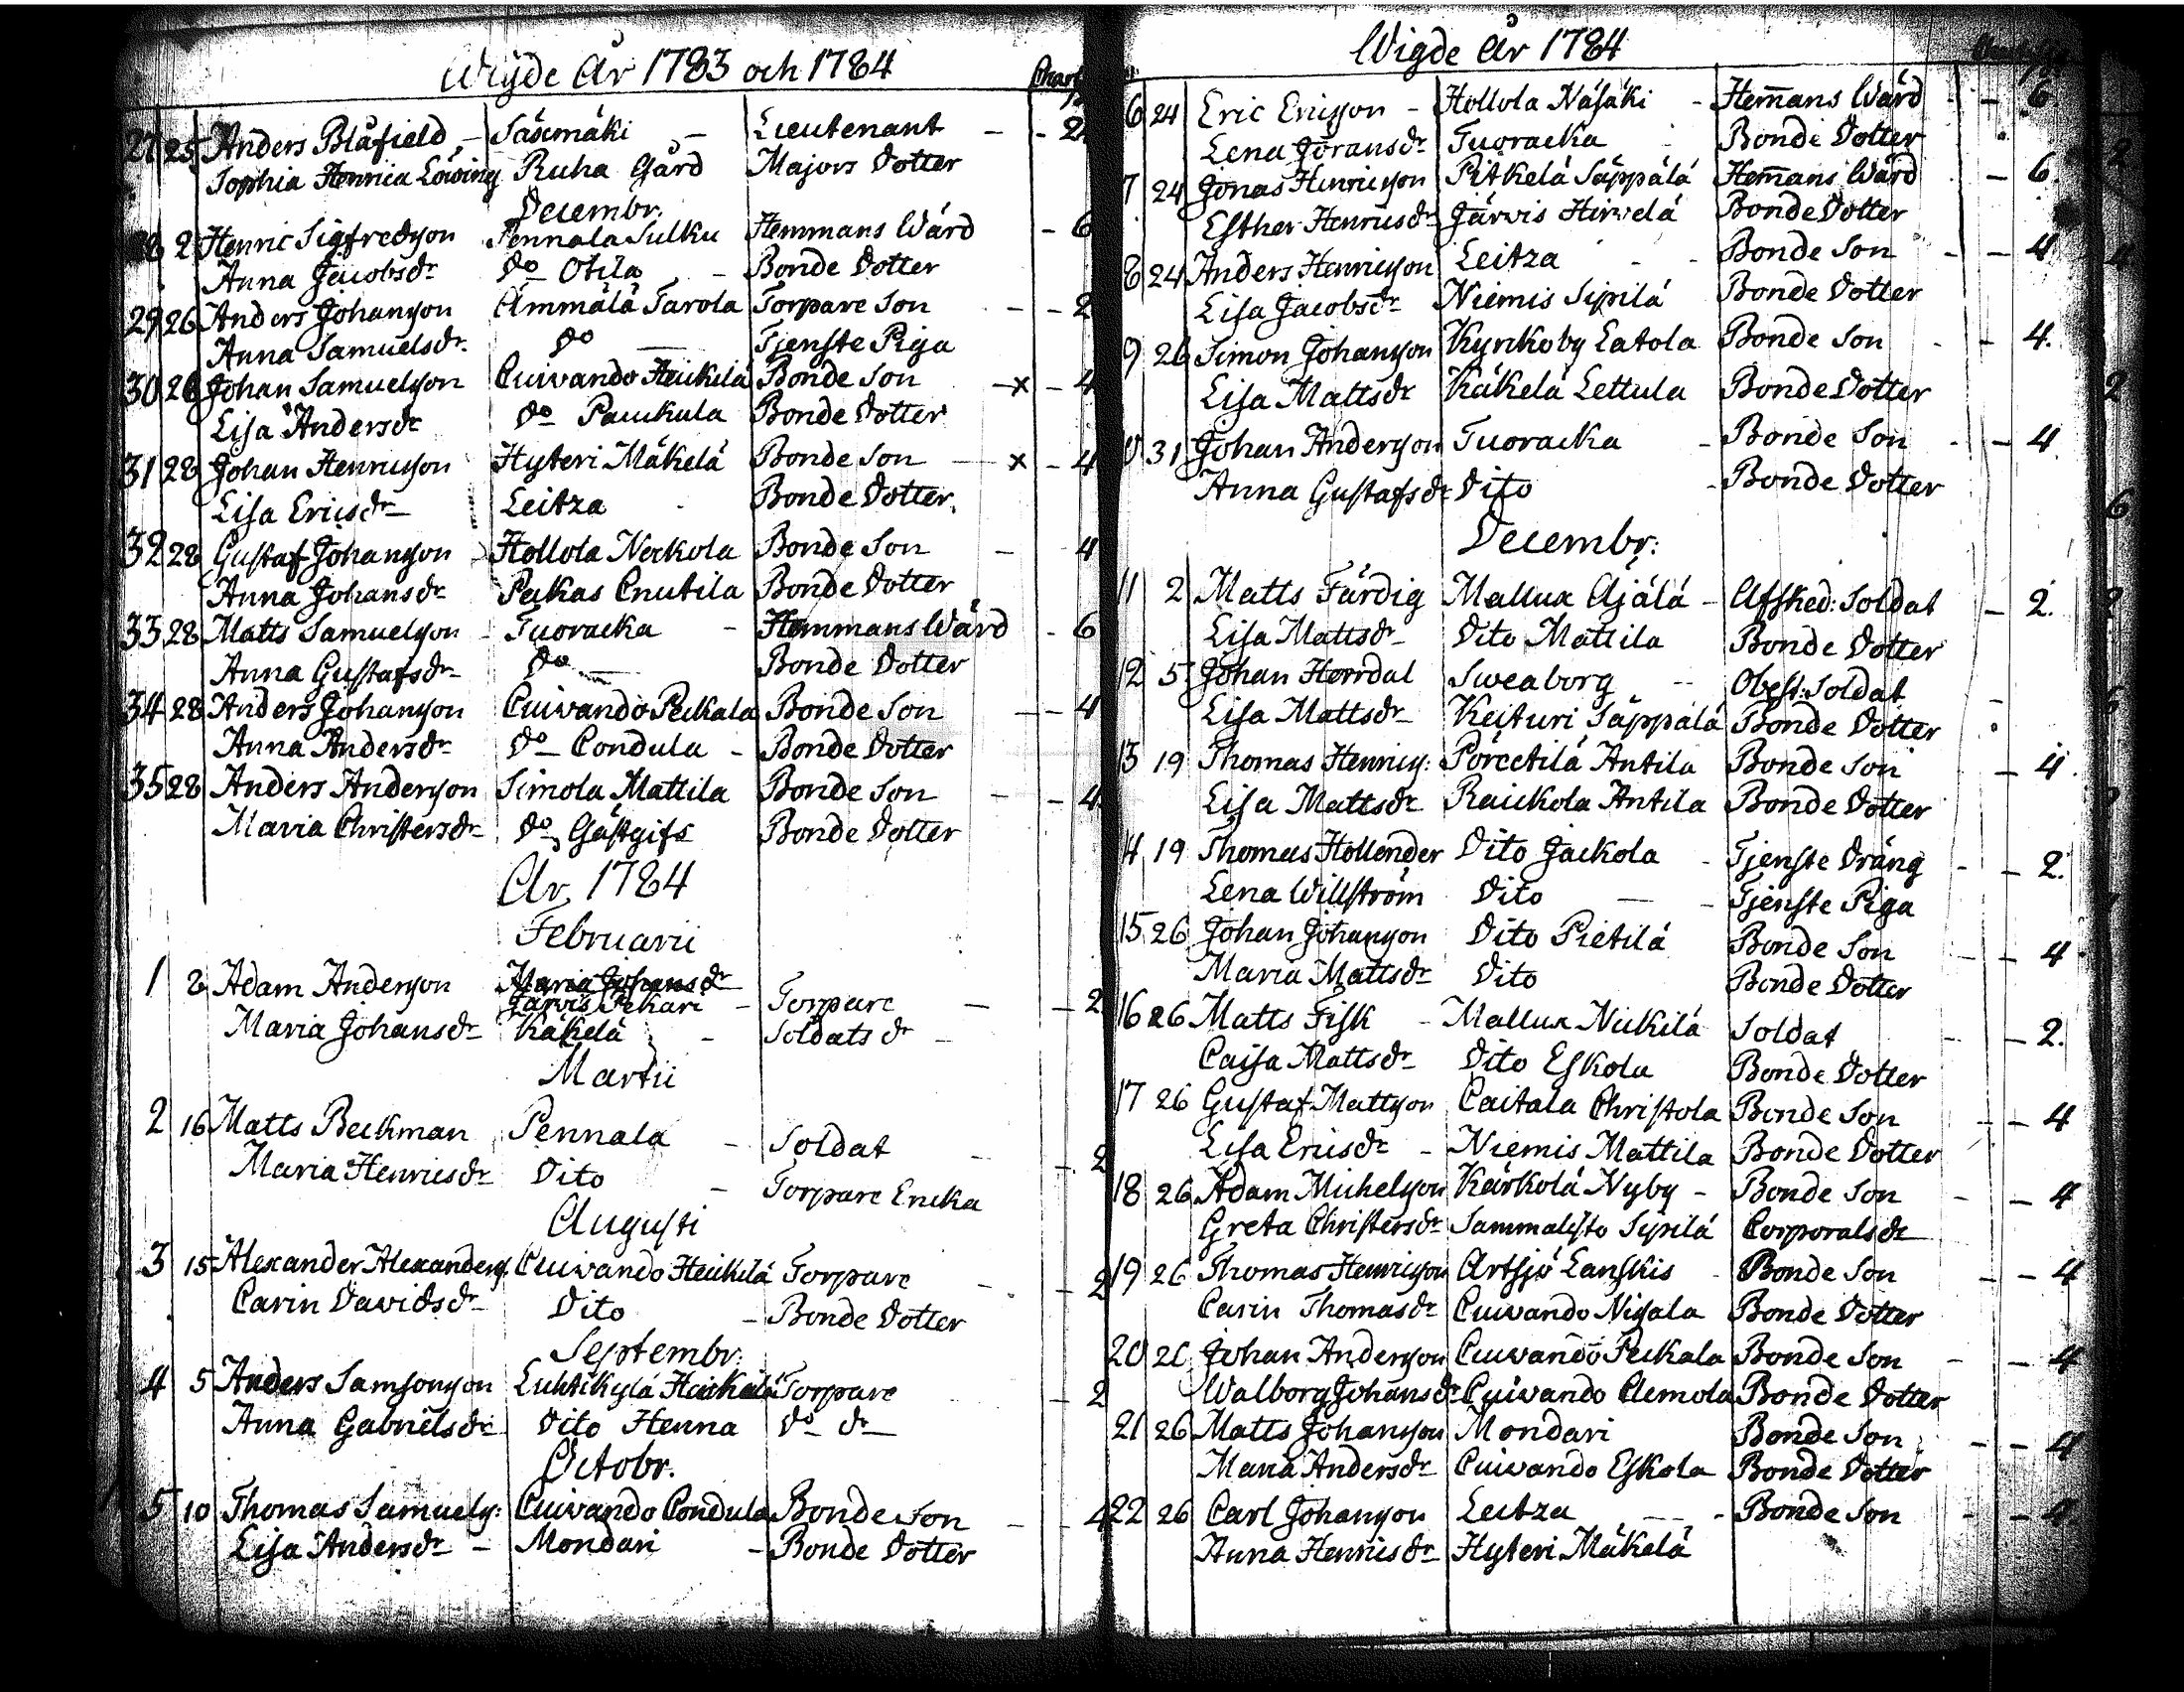 Wigde År 1783 och 1784
27 25 Anders Blåfield - Säximäki - Lieutenant - - 2
Sophia Henrica Löwing Ruha Gård Majors Dotter
Decembr.
28 2 Henric Sigfredson Pennala Sulku Hemmans Wärd - 6
Anna Jacobsdr Do Otila - Bonde Dotter
29 26 Anders Johanson Ammälä Tarola Torpare Son - - 2
Anna Samuelsdr. Do Tjenste Piga
30 26 Johan Samuelson Cuivando Heickilä Bonde Son - x - 4
Lisa Andersdr Do Pauckula Bonde Dotter
31 28 Johan Henricson Hyteri Mäkelä Bonde Son - x - 4
Lisa Ericsdr Leitza Bonde Dotter.
32 28 Gustaf Johanson Hollola Neckola Bonde Son - 4
Anna Johansdr Pakas Cnutila Bonde Dotter
33 28 Matts Samuelson Tuoracka - Hemmans Wärd - 6
Anna Gustafsdr Do Bonde Dotter
34 28 Anders Johanson Cuivando Peckala Bonde Son - - 4
Anna Andersdr Do Condula - Bonde Dotter
35 28 Anders Anderson Simola Mattila Bonde Son - - 4
Maria Christersdr Do Gästgifs Bonde Dotter
År 1784
Februarii
1 8 Adam Anderson Maria Johansdr
Järvis Pekari - Torpare - - 2
Maria Johansdr Käkelä - Soldats dr -
Martii
2 16 Matts Beckman Pennala - Soldat - - 2
Maria Henricsdr Dito - Torpare Encka
Augusti
3 15 Alexander Alexanders. Cuivando Heickilä Torpare - - 2
Carin Davidsdr Dito - Bonde Dotter
Septembr:
4 5 Anders Samsonson Luhtikylä Torpare - 2
Anna Gabrielsdr Dito Henna Do dr
Octobr.
5 10 Thomas Samuels: Cuivando Condula Bonde Son - - 4
Lisa Andersdr - Mondari - Bonde Dotter
Wigde År 1784
6 24 Eric Ericson - Hollola Näsäki - Hem̄ans Wärd - - 6
Lena Göransdr Tuoracka Bonde Dotter
7 24 Jonas Henricson Pitkelä Säppälä Hem̄ans Wärd - 6
Esther Henricsdr Järvis Hirvelä Bonde Dotter
8 24 Anders Henricson Leitza - - Bonde Son - - 4
Lisa Jacobsdr Niemis Sipilä Bonde Dotter
9 26 Simon Johanson Kyrckoby Latola Bonde Son - - 4.
Lisa Mattsdr Käkelä Lettula Bonde Dotter
10 31 Johan Anderson Tuoracka - Bonde Son - - 4
Anna Gustafsdr Dito - Bonde Dotter
Decembr:
11 2 Matts Färdig Mallux Ajälä - Afsked: Soldat - 2.
Lisa Mattsdr Dito Mattila Bonde Dotter
12 5 Johan Horrdal Sweaborg - Obest: Soldat -
Lisa Mattsdr Keituri Säppälä Bonde Dotter
13 19 Thomas Henrics: Antila Bonde Son - 4
Lisa Mattsdr Raickola Antila Bonde Dotter
14 19 Thomas Hollender Dito Jackola - Tjenste Dräng - - 2.
Lena Willström Dito - - Tjenste Piga
15 26 Johan Johanson Dito Pietilä Bonde Son - - 4
Maria Mattsdr Dito Bonde Dotter
16 26 Matts Fisk - Mallux Nickilä Soldat - - 2.
Caisa Mattsdr Dito Eskola Bonde Dotter
17 26 Gustaf Mattson Caitala Christola Bonde Son - - 4
Lisa Ericsdr - Niemis Mattila Bonde Dotter
18 26 Adam Michelson Kärkolä Nyby - Bonde Son - - 4
Greta Christersdr Sammalisto Sipilä Corporalsdr
19 26 Thomas Henricson Artsjö Lanskis - Bonde Son - - 4
Carin Thomasdr Cuivando Nigala Bonde Dotter
20 26 Johan Anderson Cuivando Peckala Bonde Son - - 4
Walborg Johansdr Cuivando Clemola Bonde Dotter
21 26 Matts Johanson Mondari Bonde Son - - 4
Maria Andersdr Cuivando Eskola Bonde Dotter
22 26 Carl Johanson Leitza - - - Bonde Son - - 4
Anna Henricsdr Hyteri Mäkelä